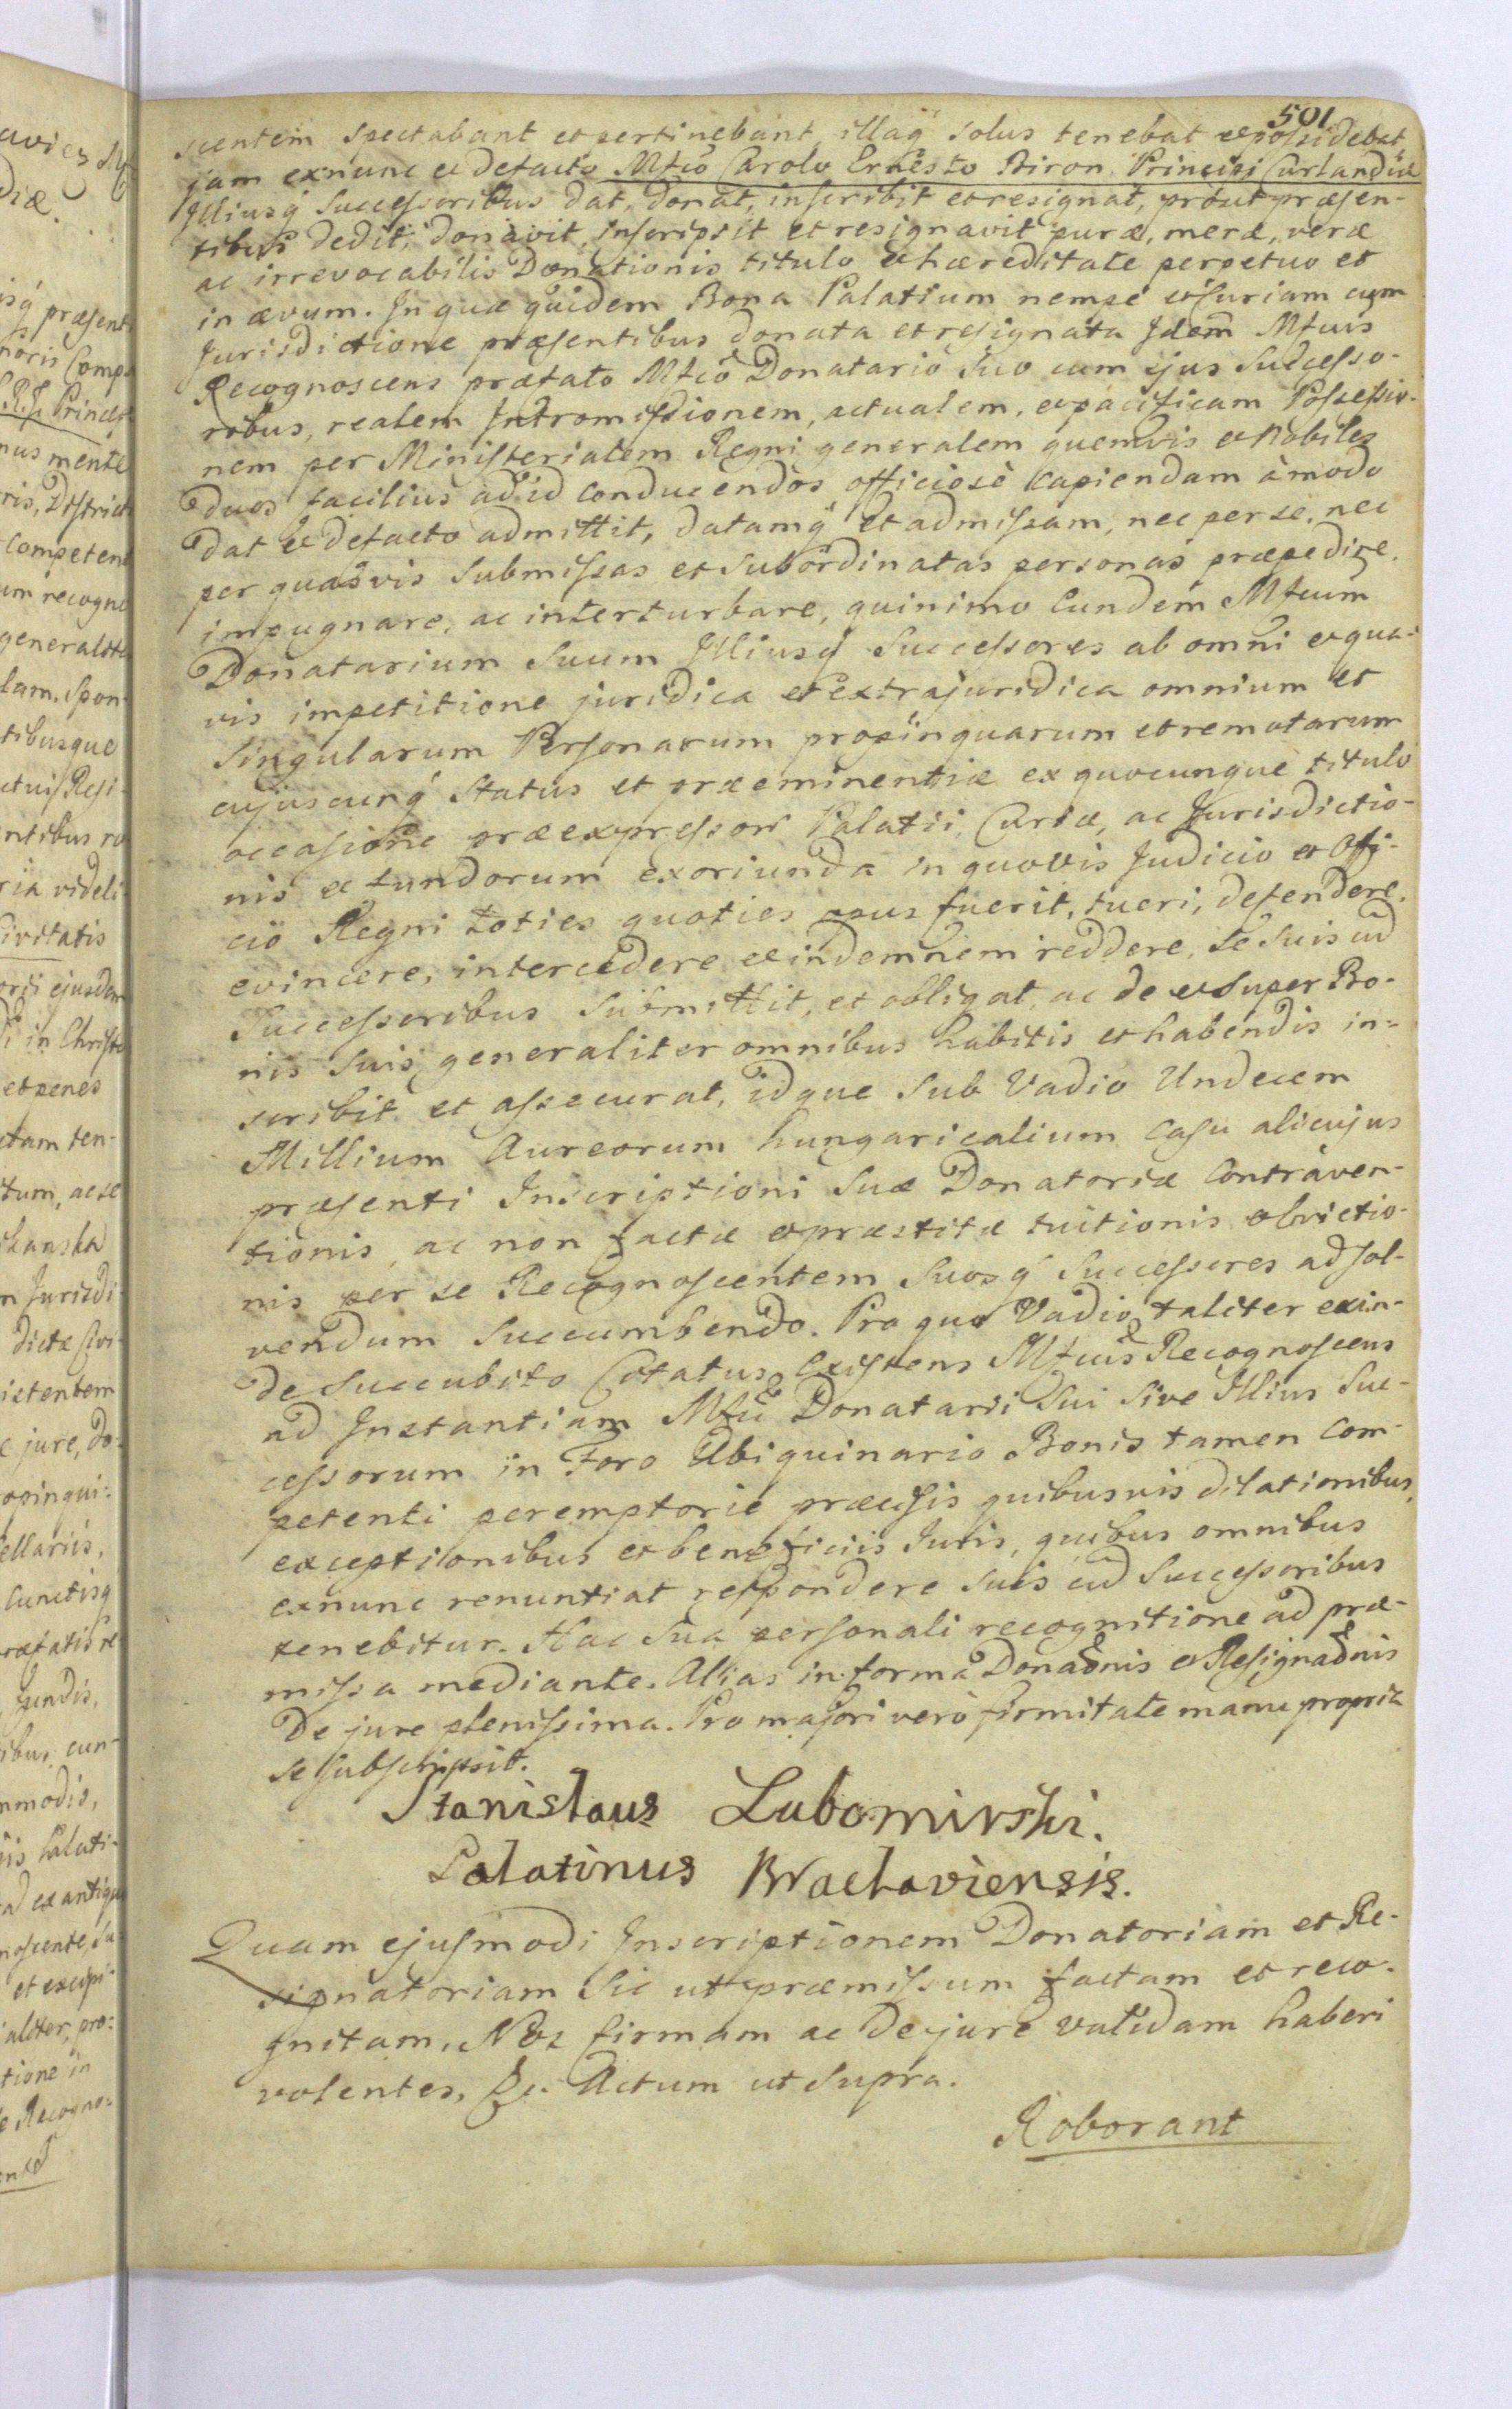 501
scentem spectabant et pertinebant, illaq́ solus tenebat et possidebat,
jam exnunc et defacto Mfcō Carolo Ernesto Biron Principi Curlandiæ
Illiusq́ Successoribus dat, donat, inscribit et resignat, prout præsen-
tibus dedit, donavit, inscripsit et resignavit puræ, meræ, veræ
ac irrevocabilis Donationis titulo et hæreditate perpetuo et
in ævum. In quæ quidem Bona Palatium nempe et Curiam cum
Jurisdictione præsentibus donata et resignata Idem Mfcus
Recognoscens præfato Mfcō Donatario Suo cum ejus Successo-
ribus, realem Intromissionem, actualem, et pacificam Possessio-
nem per Ministerialem Regni generalem quemvis et Nobiles
duos facilius ad id conducendos officiosè capiendam àmodo
dat et defacto admittit, datamq́ et admissam, nec per se, nec
per quasvis Submissas et Subordinatas personas præpedire,
impugnare, ac interturbare, quinimo Eundem Mfcum
Donatarium Suum Illiusq́ Successores ab omni et qua-
vis impetitione juridica et extrajuridica omnium et
Singularum Personarum propinquarum et remotarum
cujuscunq́ Status et præeminentiæ ex quocunque titulo
occasione præexpressor̄ Palatii, Curiæ, ac Jurisdictio-
nis et fundorum exoriunda in quovis Judicio et Offi-
cio Regni toties quoties opus fuerit, tueri, defendere,
evincere, intercedere et indemnem reddere, Se Suis cū
Successoribus Submittit, et obligat, ac de et Super Bo-
nis Suis generaliter omnibus habitis et habendis in-
scribit et assecurat, idque Sub Vadio Undecem
Millium Aureorum hungaricalium casu alicujus
præsenti Inscriptioni Suæ Donatoriæ Contraven-
tionis, ac non factæ et præstitæ tuitionis et Evictio-
nis per se Recognoscentem Suosq́ Successores ad sol-
vendum Succumbendo. Pro quo Vadio taliter exin-
de Succubito Citatus Existens Mfcus Recognoscens
ad Instantiam Mfci Donatarii Sui Sive Illius Suc-
cessorum in Foro Ubiquinario Bonis tamen Com-
petenti peremptorie præcisis quibusvis dilationibus,
exceptionibus et beneficiis Juris, quibus omnibus
exnunc renuntiat respondere Suis cū Successoribus
tenebitur. Hac Sua personali recognitione ad præ-
missa mediante. Alias in forma Donaōnis et Resignaōnis
De jure plenissima. Pro majori verò firmitate manu propria
se subscripsit.
Stanislaus Lubomirski.
Palatinus Braclaviensis.
Quam ejusmodi Inscriptionem Donatoriam et Re-
signatoriam Sic ut præmissum factam et reco-
gnitam, Nos firmam ac De jure validam haberi
volentes, &c. Actum ut Supra.
Roborant